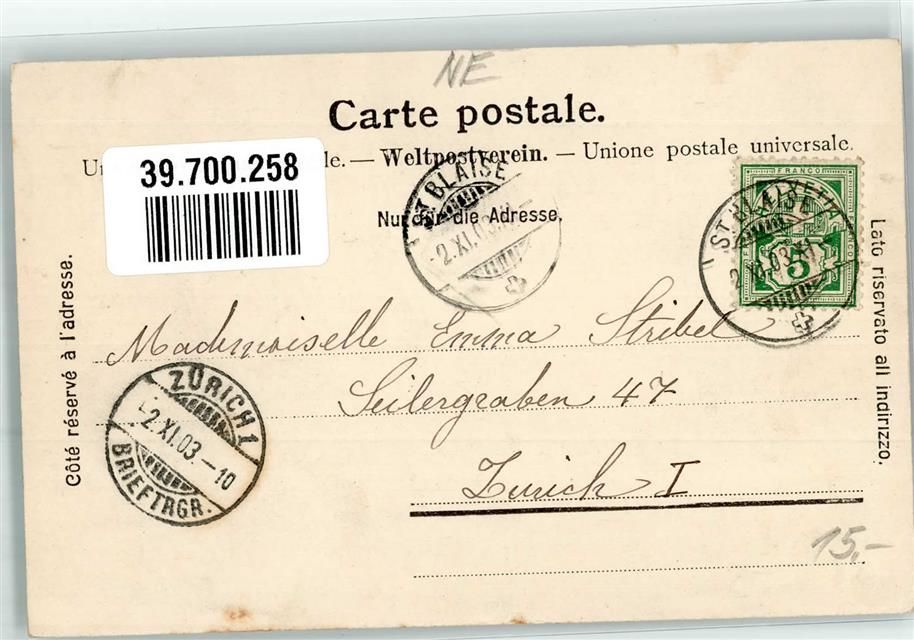 NE
Carte postale.
39.700.258
— Weltpostverein. — Unione postale universale.
Nur für die Adresse.
ST BLAISE
2.XI.03
FRANCO
HELVETIA
5
ST BLAISE
2.XI.03.XI
Côté réservé à l'adresse.
Lato riservato all indirizzo.
Mademoiselle Emma Stribel
Seilergraben 47
Zurich I
ZÜRICH 1
-2.XI.03.-10
BRIEFTRGR.
15,-